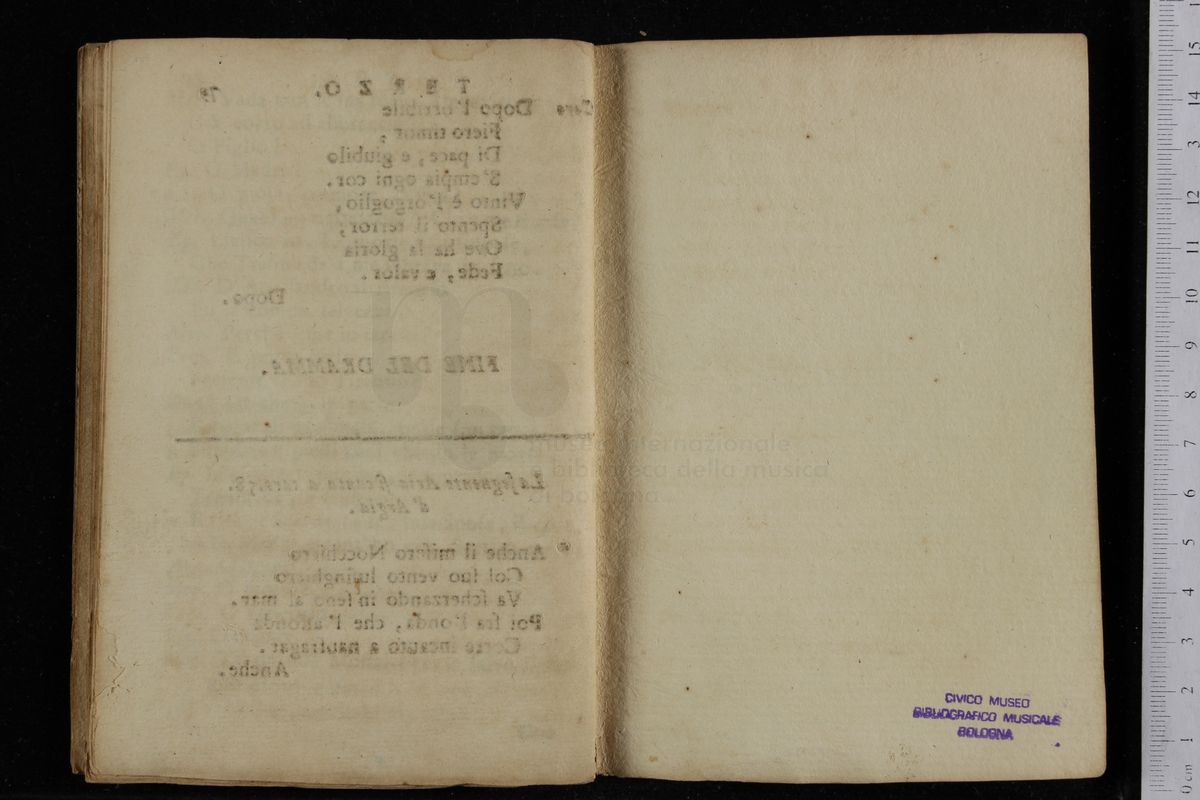 TERZO. 79
Coro Dopo l'orribile
Fiero timor,
Di pace, e giubilo
S'empia ogni cor.
Vinto è l'orgoglio,
Spento il terror;
Ove ha la gloria
Fede, e valor.
Dopo.
FINE DEL DRAMMA.
La seguente Aria si canta a carte
d'Argia.
Anche il misero Nocchiero
Col suo vento lusinghiero
Va scherzando in seno al mar.
Poi fra l'onda, che l'affonda
Corre incauto a naufragar.
Anche.
museo internazionale
e biblioteca della musica
di bologna
CIVICO MUSEO
BIBLIOGRAFICO MUSICALE
BOLOGNA
0 cm 1 2 3 4 5 6 7 8 9 10 11 12 13 14 15